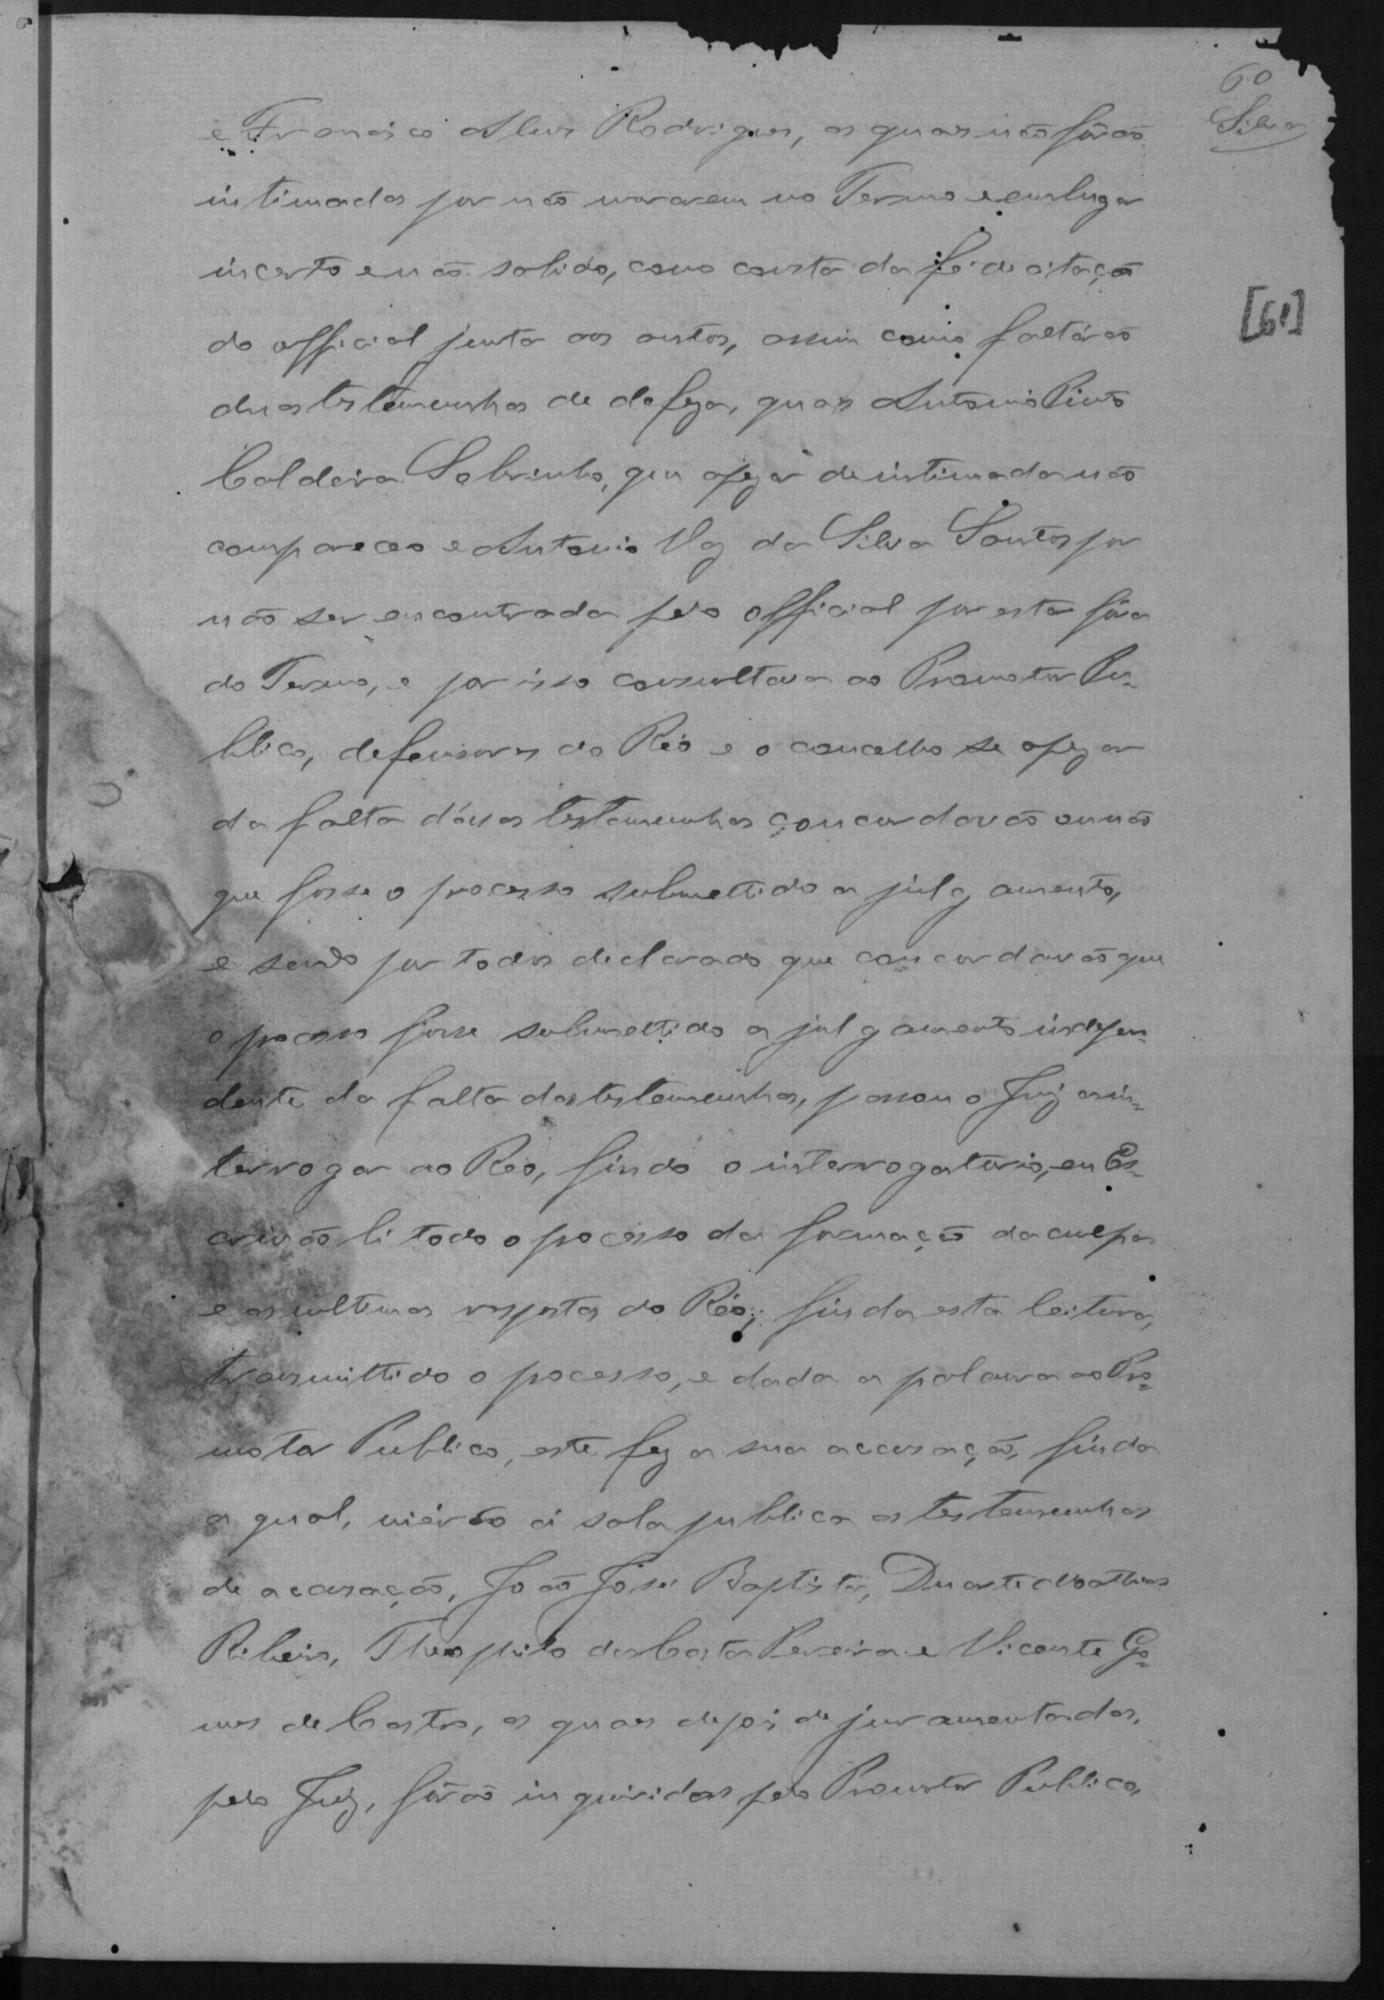 60
Silva
[61]
e Francisco Alves Rodrigues, as quaes não fôrão
intimadas por não morarem no Termo e em lugar
incerto e não sabido, como consta da fé de citação
do official junta aos autos, assim como faltárão
duas testemunhas de defeza, quaes Antonio Pinto
Caldeira Sobrinho, que apezar de intimada não
compareceo e Antonio Vaz da Silva Santos por
não ser encontrada pelo official por estar fóra
do Termo, e por isso consultava ao Promotor Pu-
blico, defensores do Réo e o concelho se apezar
da falta dáquas testemunhas concordavão ou não
que fosse o processo submettido a julgamento,
e sendo por todos declarado que concordavão que
o pocesso fosse submettido a julgamento indepen-
dente da falta das testemunhas, passou o Juiz a in-
terrogar ao Réo, findo o interrogatorio, eu Es-
crivão li todo o pocesso da formação da culpa
e as ultimas respostas do Réo; finda esta leitura,
transmittido o pocesso, e dada a palavra ao Pro-
motor Publico, este fez a sua accusação, finda
a qual, viérão á sala publica as testemunhas
de accusação, João José Baptista, Duarte Mathias
Ribeiro, Theophilo da Costa Pereira e Vicente Go-
mes de Castro, as quaes depois de juramentadas,
pelo Juiz, fôrão inquiridas pelo Promotor Publico,